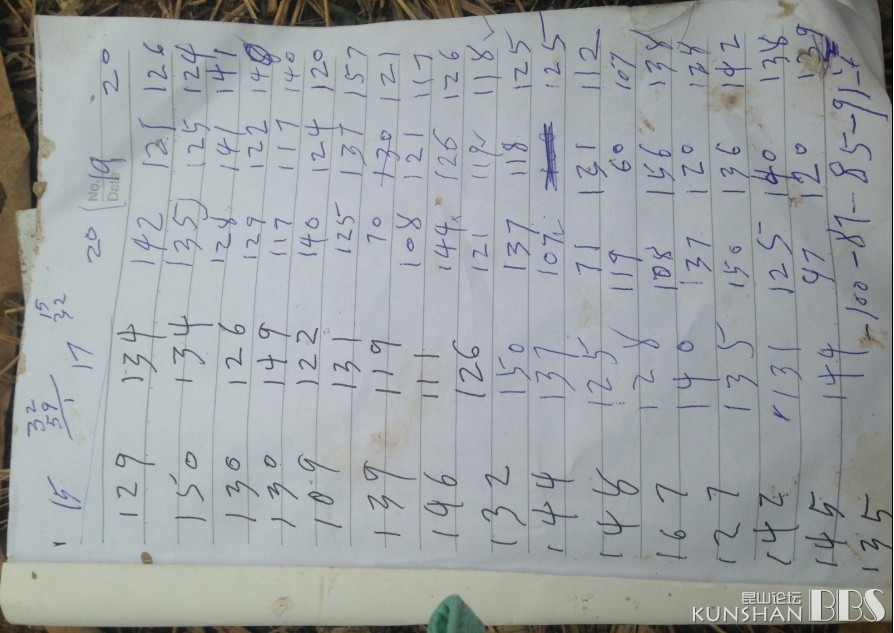 32
59
15
32
15 17 20 19 20
No.
Date
129 134 142 121 126
150 134 135 125 124
130 126 128 141 141
130 149 129 122
109 122 117 117 140
131 140 124 120
139 119 125 137 157
146 111 70 130 121
126 108 121 117
132 150 144 126 126
144 137 121 118 118
125 137 118 125
148 128 107 125
167 140 71 131 112
127 135 119 60 107
142 131 108 156 138
145 144 137 120 124
135 150 136 142
125 140 138
97 120 139
-100-87-85-91-
昆山论坛
KUNSHAN BBS